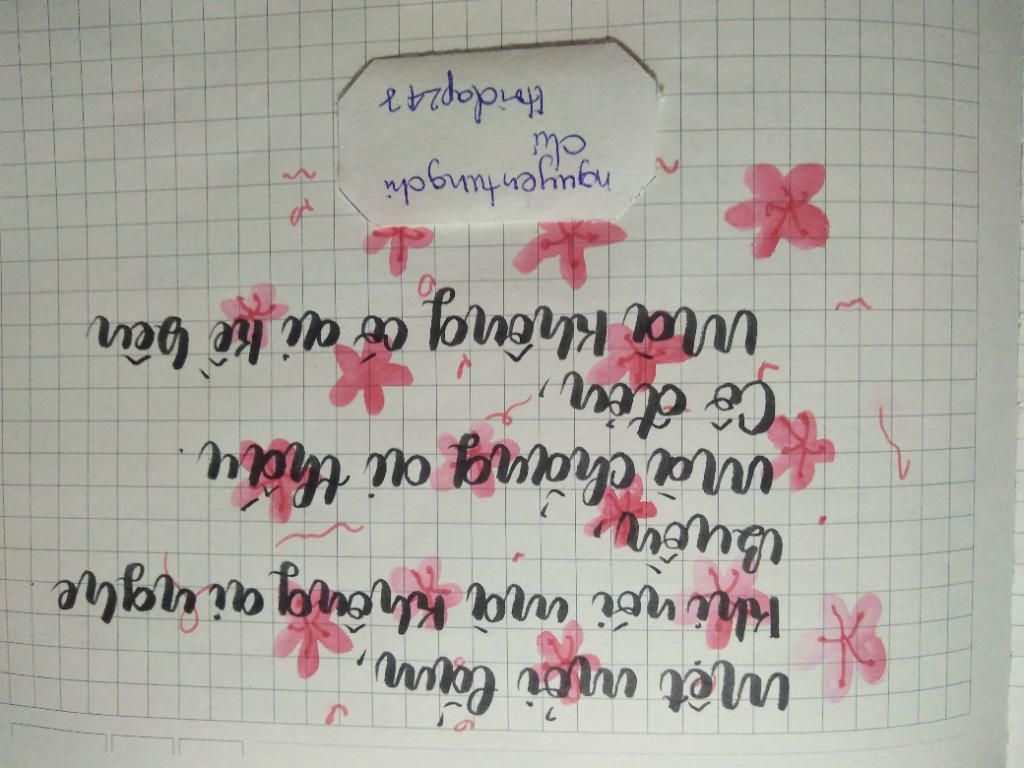 Mệt mỏi lắm,
Khi nói mà không ai nghe
Buồn,
Mà chẳng ai thấu
Cô đơn,
Mà không có ai kề bên
nguyentungchi
Hoidap247